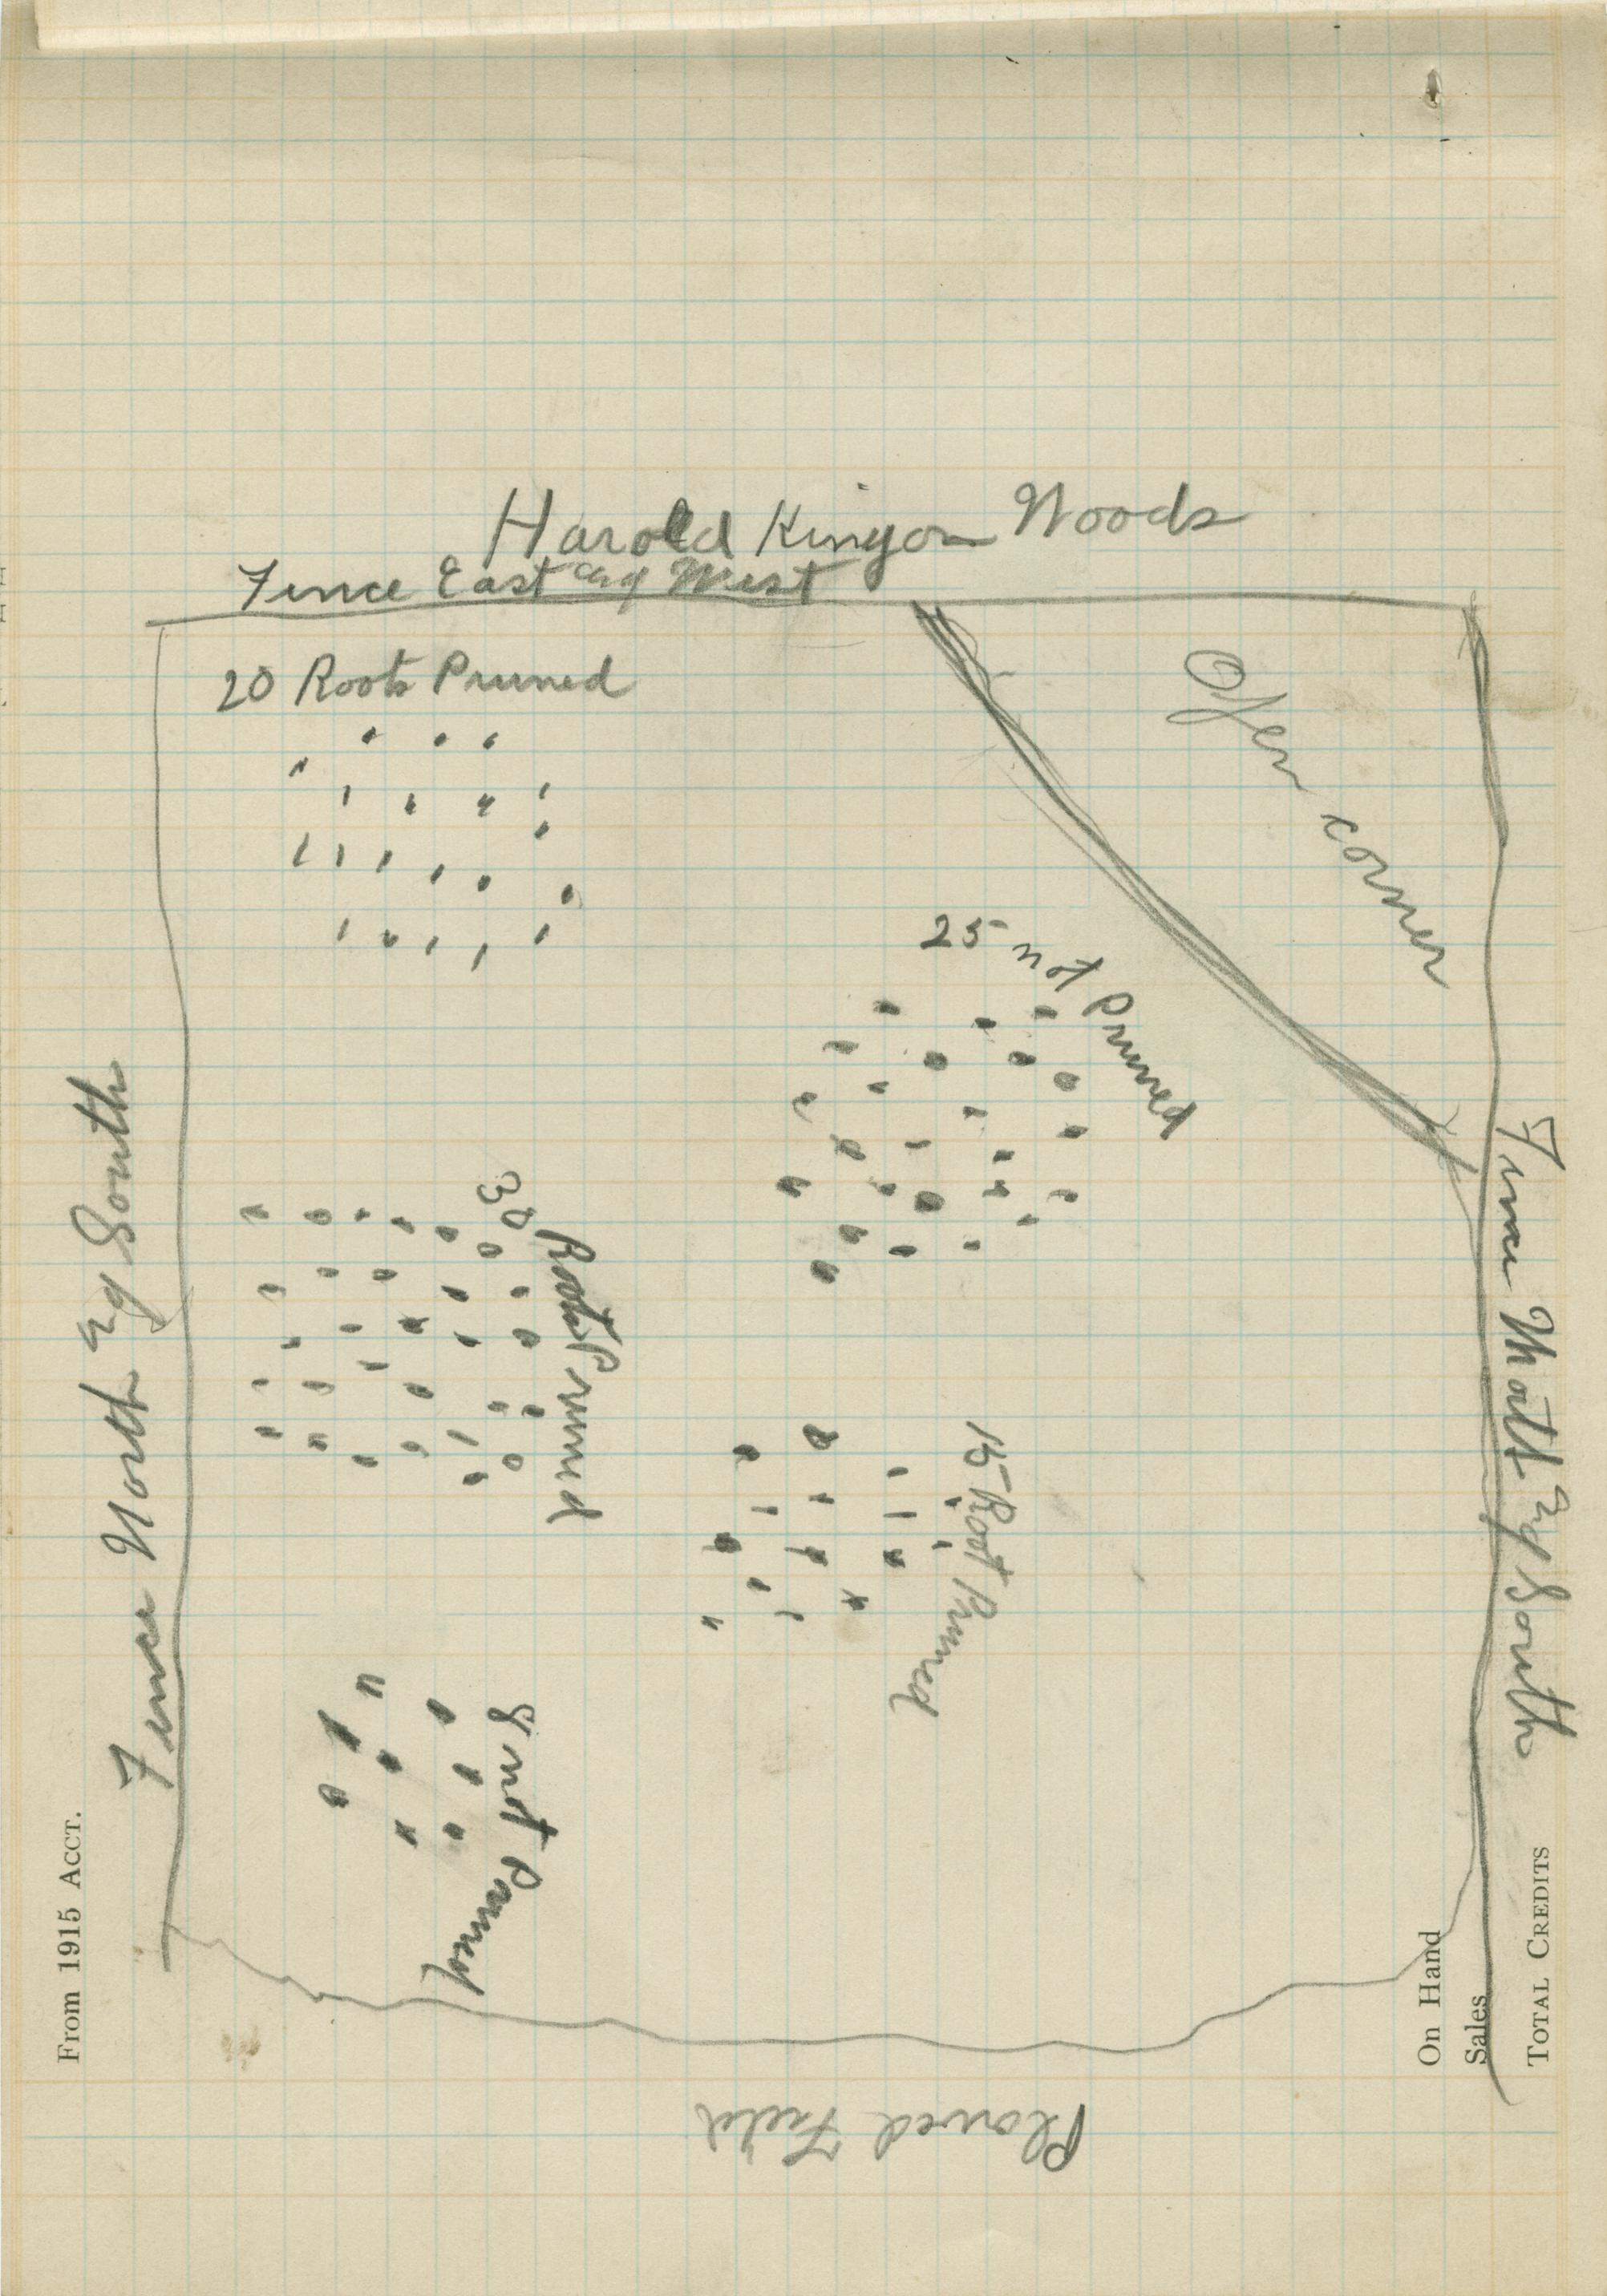 Harold Kinyon Woods
Fence East and West
20 Roots Pruned
Open corner
25 not Pruned
Fence North and South
30 Roots Pruned
15 Root Pruned
8 not Pruned
Fence North and South
Plowed Field
From 1915 Acct.
On Hand
Sales
Total Credits